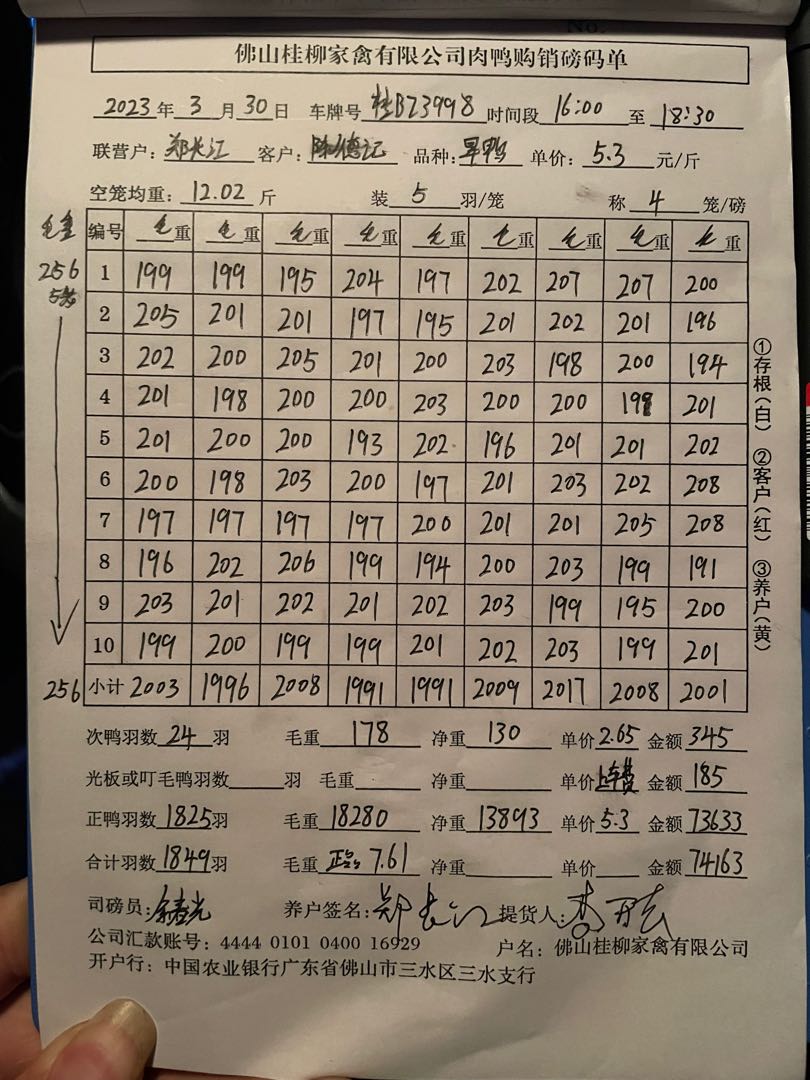 No.
佛山桂柳家禽有限公司肉鸭购销磅码单
2023年 3 月 30 日 车牌号 桂BZ3998 时间段 16:00 至 18:30
联营户: 郑长江 客户: 陈德记 品种: 旱鸭 单价: 5.3 元/斤
空笼均重: 12.02 斤 装 5 羽/笼 称 4 笼/磅
毛重 编号 毛重 毛重 毛重 毛重 毛重 毛重 毛重 毛重 毛重
256 1 199 199 195 204 197 202 207 207 200
2 205 201 201 197 195 201 202 201 196
3 202 200 205 201 200 203 198 200 194
4 201 198 200 200 203 200 200 198 201
5 201 200 200 193 202 196 201 201 202
6 200 198 203 200 197 201 203 202 208
7 197 197 197 197 200 201 201 205 208
8 196 202 206 199 194 200 203 199 191
9 203 201 202 201 202 203 199 195 200
10 199 200 199 199 201 202 203 199 201
256 小计 2003 1996 2008 1991 1991 2009 2017 2008 2001
①存根(白) ②客户(红) ③养户(黄)
次鸭羽数 24 羽 毛重 178 净重 130 单价 2.65 金额 345
光板或叮毛鸭羽数 羽 毛重 净重 单价 上车费 金额 185
正鸭羽数 1825 羽 毛重 18280 净重 13893 单价 5.3 金额 73633
合计羽数 1849 羽 毛重 正品: 7.61 净重 单价 金额 74163
司磅员: 养户签名: 郑长江 提货人:
公司汇款账号: 4444 0101 0400 16929 户名: 佛山桂柳家禽有限公司
开户行: 中国农业银行广东省佛山市三水区三水支行